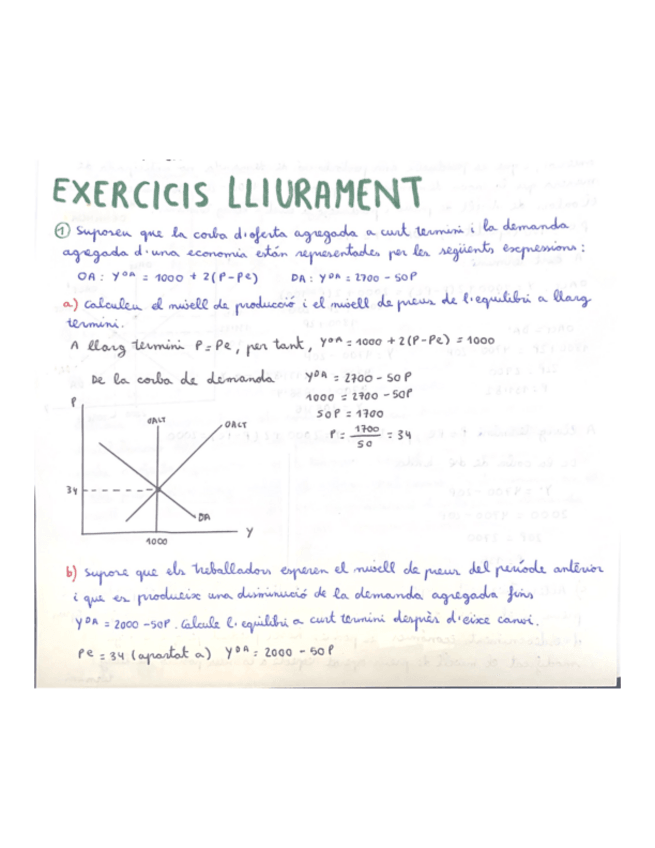 EXERCICIS LLIURAMENT
① Suposeu que la corba d'oferta agregada a curt termini i la demanda
agregada d'una economia están representades per les següents expressions:
OA: Y^OA = 1000 + 2(P-Pe) DA: Y^DA = 2700 - 50P
a) Calculeu el nivell de producció i el nivell de preus de l'equilibri a llarg
termini.
A llarg termini P = Pe, per tant, Y^OA = 1000 + 2(P-Pe) = 1000
De la corba de demanda Y^DA = 2700 - 50P
1000 = 2700 - 50P
50P = 1700
P = 1700/50 = 34
P
OALT
OACT
34
DA
Y
1000
b) Supose que els treballadors esperen el nivell de preus del període anterior
i que es produeix una disminució de la demanda agregada fins
Y^DA = 2000 - 50P. Calcule l'equilibri a curt termini després d'eixe canvi.
Pe = 34 (apartat a) Y^DA = 2000 - 50P